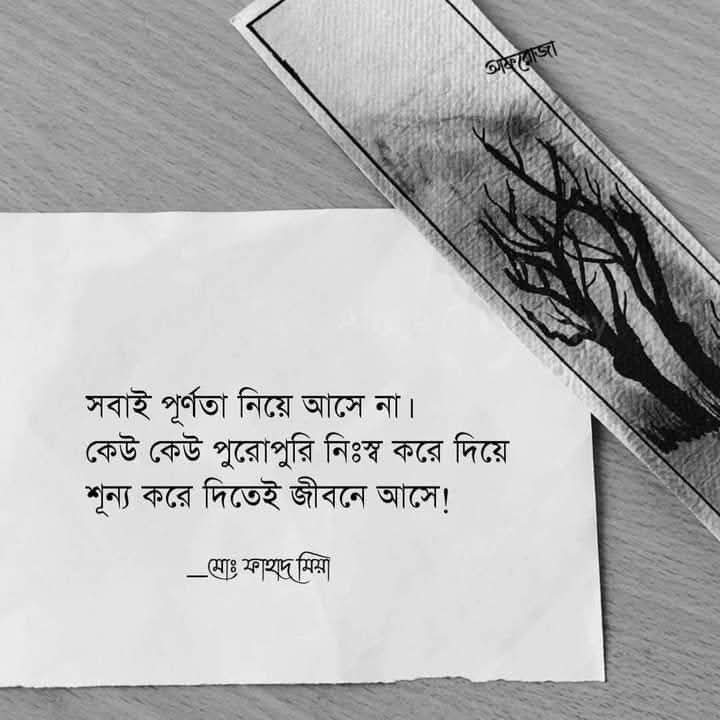 আফরোজা
সবাই পূর্ণতা নিয়ে আসে না।
কেউ কেউ পুরোপুরি নিঃস্ব করে দিয়ে
শূন্য করে দিতেই জীবনে আসে!
_মোঃ ফাহাদ মিয়া